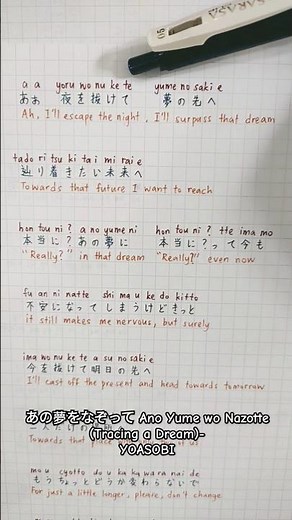 SARASA
05
a a yoru wo nu ke te yume no saki e
ああ 夜を抜けて 夢の先へ
Ah, I'll escape the night, I'll surpass that dream
tado ri tsu ki ta i mi rai e
辿り着きたい未来へ
Towards that future I want to reach
hon tou ni? a no yume ni hon tou ni? tte ima mo
本当に?あの夢に 本当に?って今も
"Really?" in that dream "Really?" even now
fu an ni natte shi ma u ke do kitto
不安になってしまうけどきっと
it still makes me nervous, but surely
ima wo nu ke te a su no saki e
今を抜けて明日の先へ
I'll cast off the present and head towards tomorrow
あの夢をなぞって Ano Yume wo Nazotte
(Tracing a Dream)-
YOASOBI
Towards that place
mo u cyotto do u ka ka wara nai de
もうちょっとどうか変わらないで
For just a little longer, please, don't change